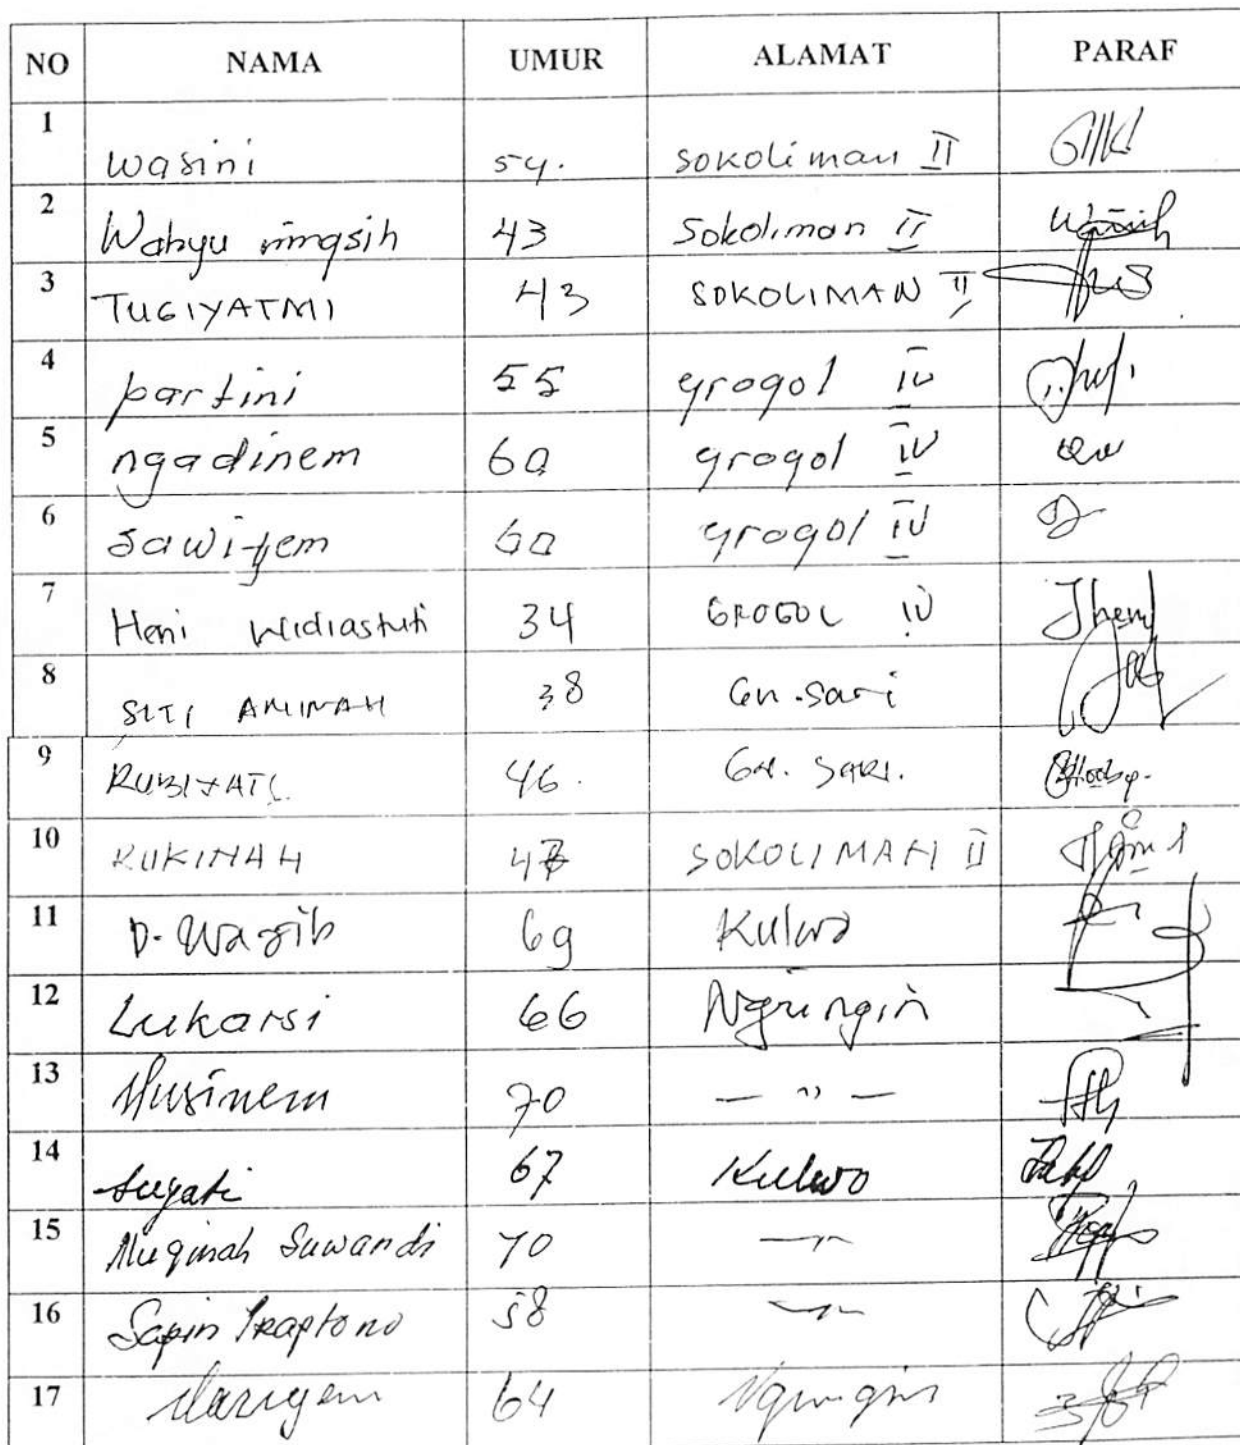 NO NAMA UMUR ALAMAT PARAF
1 wasini 54. sokoliman II
2 Wahyu ningsih 43 Sokoliman II
3 TUGIYATMI 43 SOKOLIMAN II
4 partini 55 grogol IV
5 ngadinem 60 grogol IV
6 sawiyem 60 grogol IV
7 Heni Widiastuti 34 GROGOL IV
8 SITI AMINAH 38 Gn.Sari
9 RUBIYATI 46. GN. SARI.
10 RUKINAH 43 SOKOLIMAN II
11 D. Wagib 69 Kulwo
12 Lukarsi 66 Ngringin
13 Musinem 70 — " —
14 Sugati 67 Kulwo
15 Muginah Suwandi 70 — " —
16 Sapin Praptono 58 — " —
17 Marigem 64 Ngringin